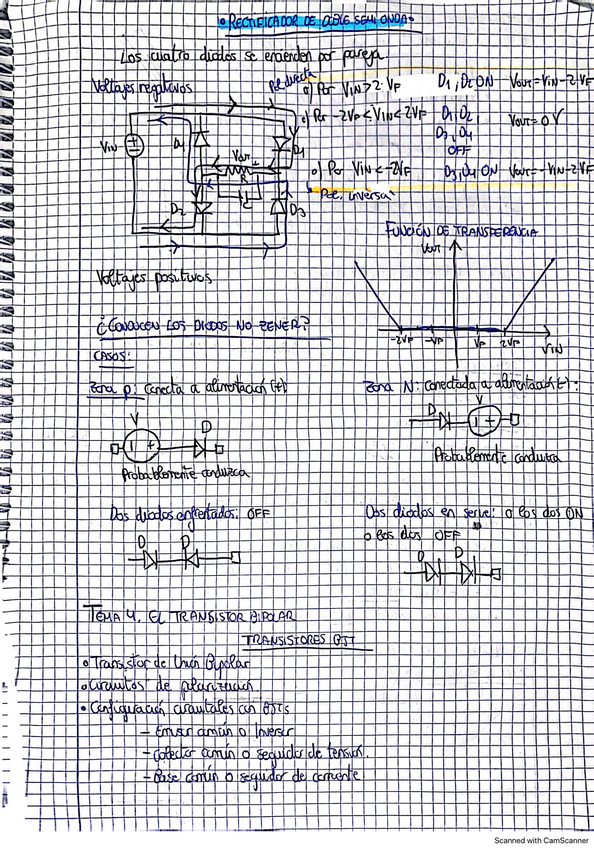 • RECTIFICADOR DE DOBLE SEMIONDA •
Los cuatro diodos se encienden por pareja
Voltajes negativos
Pol. directa
o) Por VIN > 2·VF D1, D2 ON VOUT = VIN - 2·VF
o) Por -2VF < VIN < 2VF D1, D2, D3, D4 OFF VOUT = 0V
o) Por VIN < -2VF D3, D4 ON VOUT = -VIN - 2VF
Pol. inversa
VIN
D4
D1
VOUT
+
R
D2
D3
Voltajes positivos
FUNCIÓN DE TRANSFERENCIA
VOUT
-2VF -VF VF 2VF
VIN
¿CONDUCEN LOS DIODOS NO ZENER?
CASOS:
Zona P: Conecta a alimentación (+):
V
D
- +
Probablemente conduzca
Zona N: Conectada a alimentación (-):
V
D
- +
Probablemente conduzca
Dos diodos enfrentados: OFF
D D
Dos diodos en serie: o los dos ON
o los dos OFF
D D
TEMA 4. EL TRANSISTOR BIPOLAR
TRANSISTORES BJT
• Transistor de Unión Bipolar
• Circuitos de polarización
• Configuración circuitales con BJTs
- Emisor común o Inversor
- Colector común o seguidor de tensión.
- Base común o seguidor de corriente
Scanned with CamScanner